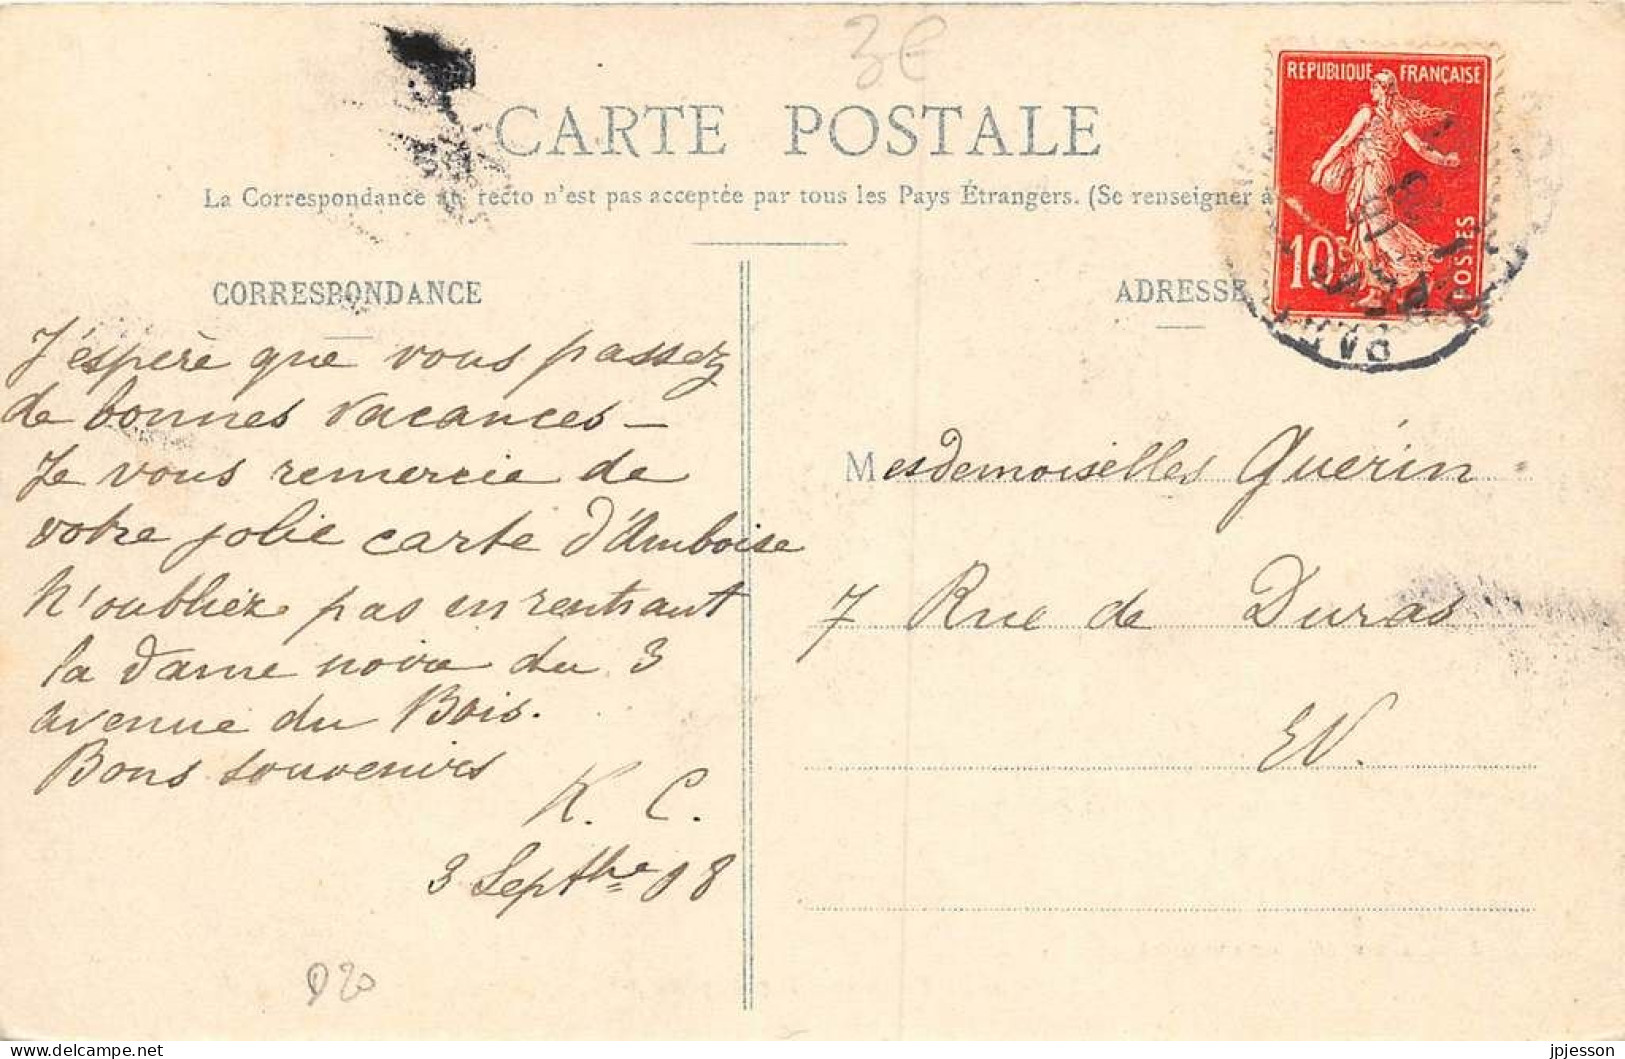 3€
CARTE POSTALE
La Correspondance au recto n'est pas acceptée par tous les Pays Étrangers. (Se renseigner à
REPUBLIQUE FRANÇAISE
10c
POSTES
PARI
CORRESPONDANCE
J'espère que vous passez
de bonnes vacances –
Je vous remercie de
votre jolie carte d'Amboise
N'oubliez pas en rentrant
la dame noire du 3
avenue du Bois.
Bons souvenirs
K. C.
3 Septbre 08
D20
ADRESSE
Mesdemoiselles Guérin
7 Rue de Duras
EV.
jpjesson
delcampe.net